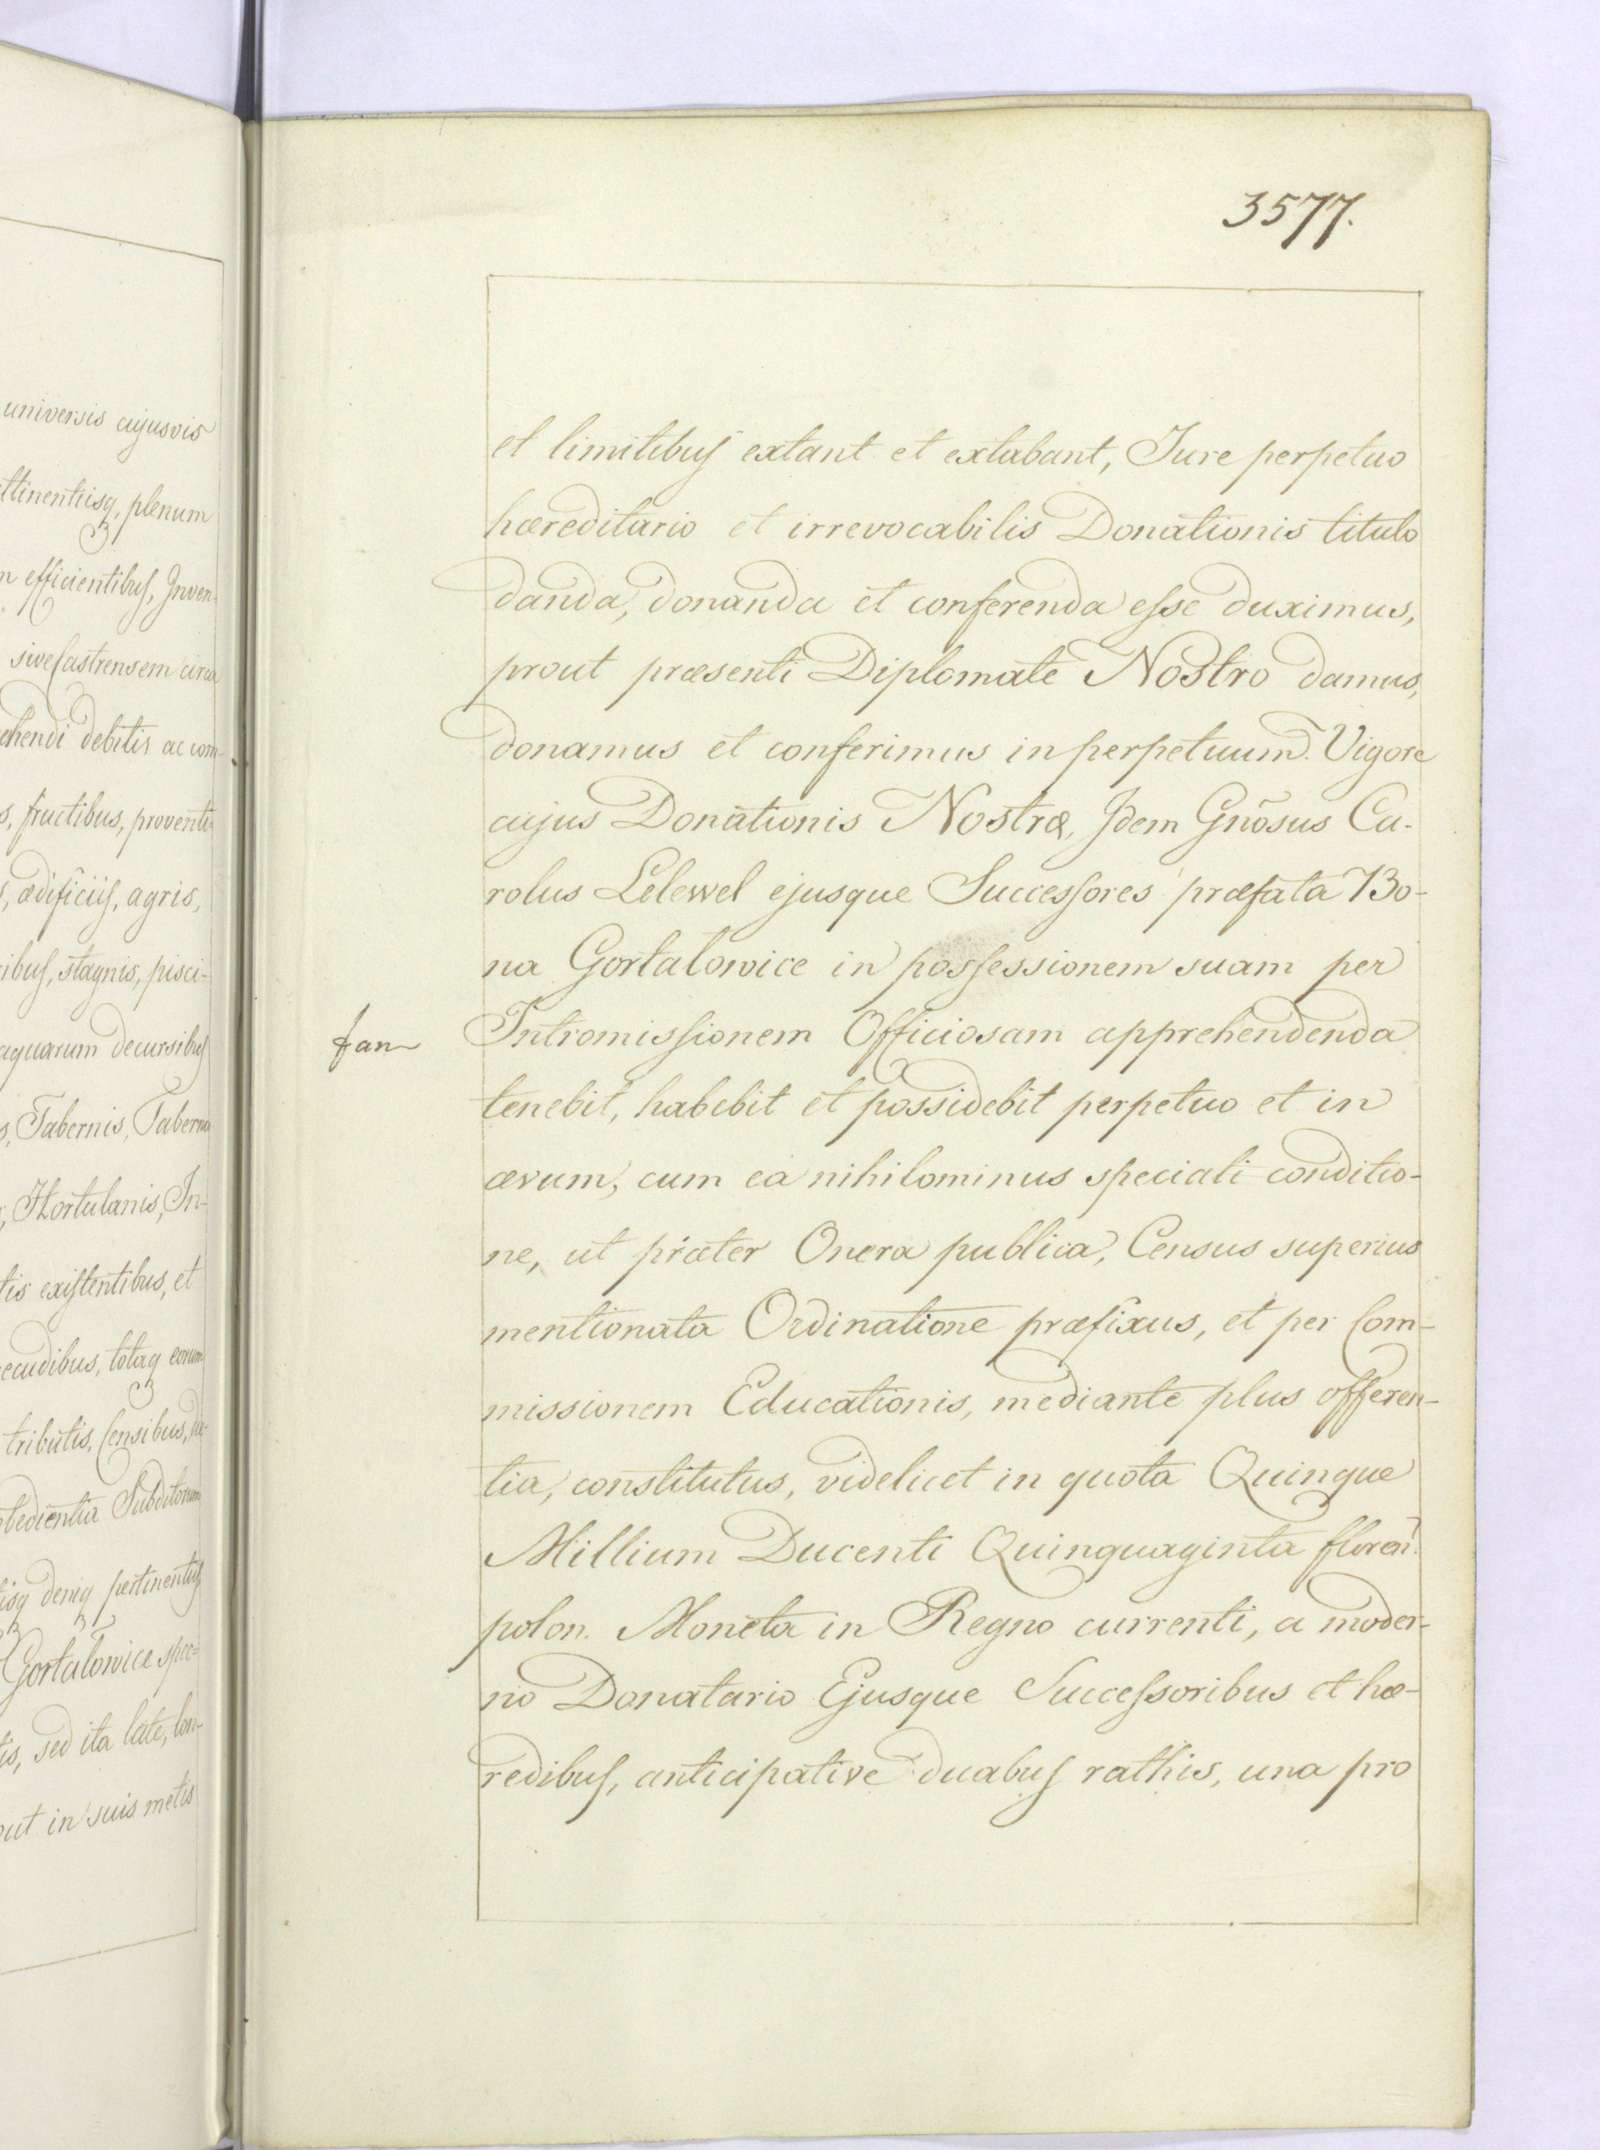 universis cujusvis
ttinentiisq, plenum
m efficientibus, Inven-
sive Castrensem circa
ehendi debitis ac com-
s, fructibus, proventi-
s, ædificiis, agris,
ibus, stagnis, pisci-
aquarum decursibus
s, Tabernis, Taberna
, Hortulanis, In-
tis existentibus, et
ecudibus, totaq eorum
tributis, Censibus,
obedientia Subditorum
isq deniq pertinentiis
Gortatowice spec-
is, sed ita late, lon-
out in suis metis
3577.
et limitibus extant et extabant, Jure perpetuo
hæreditario et irrevocabilis Donationis titulo
danda, donanda et conferenda esse duximus,
prout præsenti Diplomate Nostro damus,
donamus et conferimus in perpetuum. Vigore
cujus Donationis Nostræ, Idem Gnõsus Ca-
rolus Lelewel ejusque Successores præfata Bo-
na Gortatowice in possessionem suam per
Intromissionem Officiosam apprehendenda
tenebit, habebit et possidebit perpetuo et in
ævum, cum ea nihilominus speciali conditio-
ne, ut præter Onera publica, Census superius
mentionata Ordinatione præfixus, et per Com-
missionem Educationis, mediante plus offeren-
tia, constitutus, videlicet in quota Quinque
Millium Ducenti Quinquaginta floren.
polon. Moneta in Regno currenti, a moder-
no Donatario Ejusque Successoribus et hæ-
redibus, anticipative duabus rathis, una pro